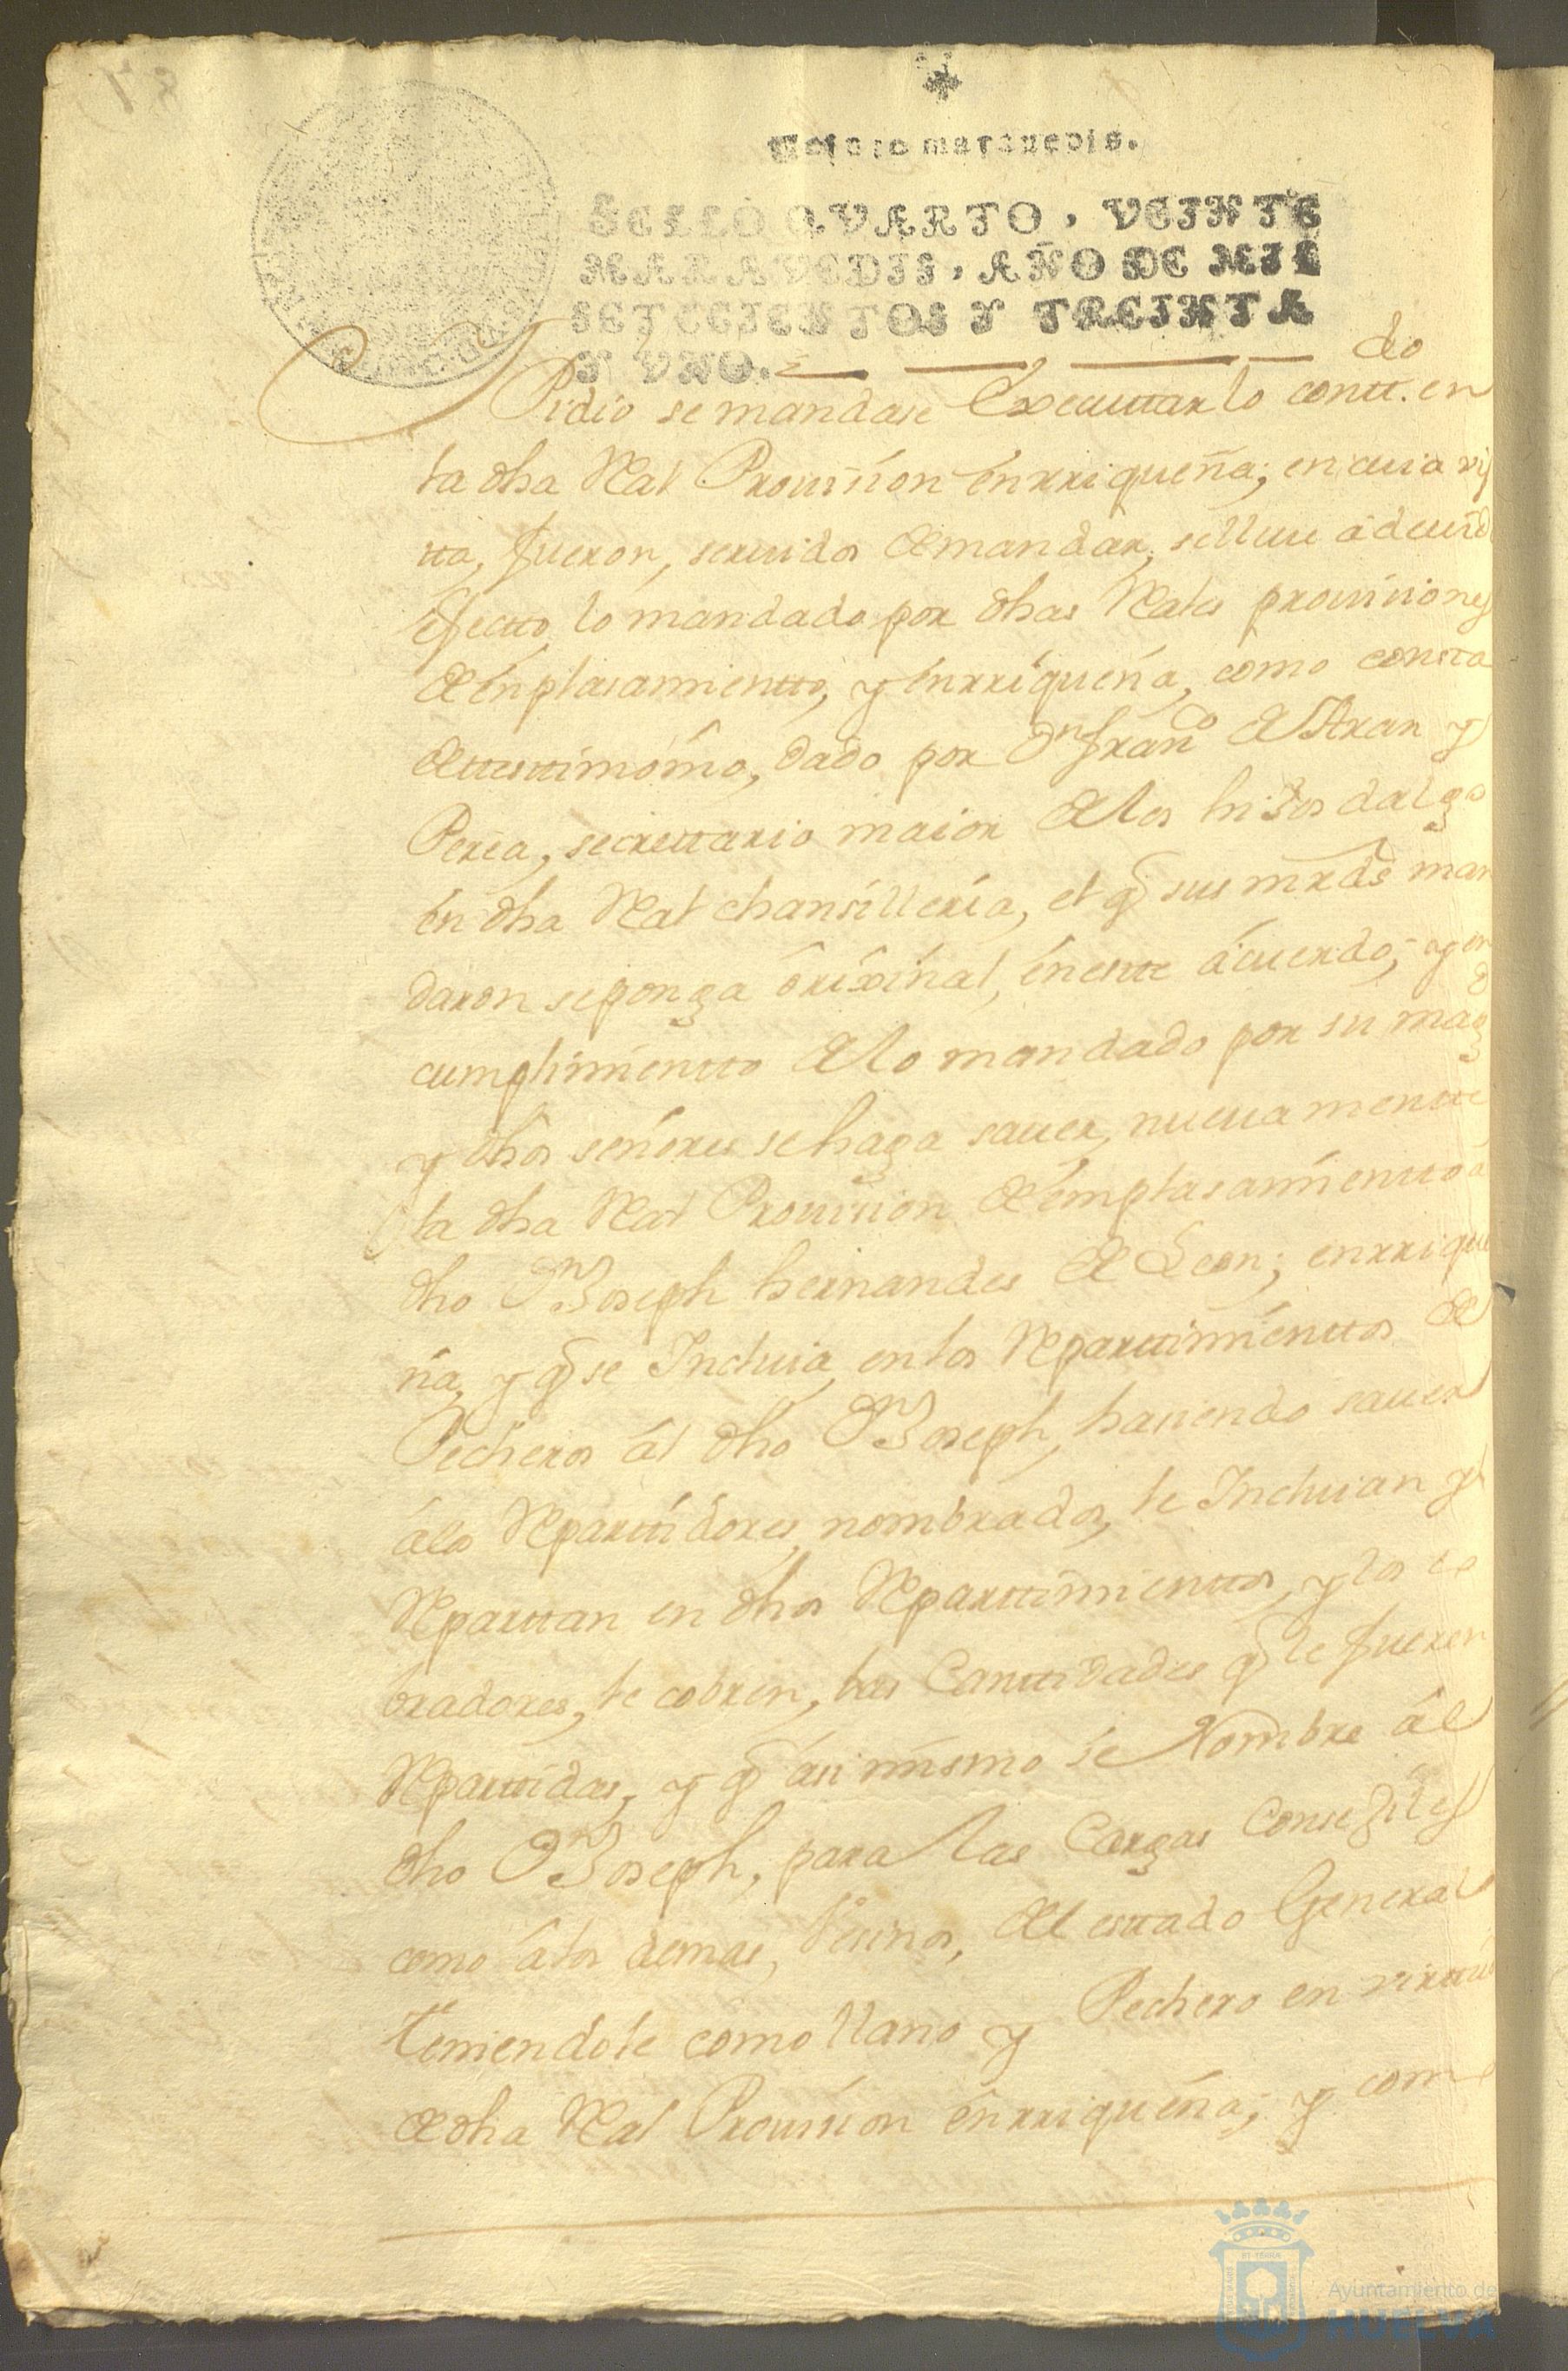 Veinte maravedis.
SELLO QVARTO, VEINTE
MARAVEDIS, AÑO DE MIL
SETECIENTOS Y TREINTA
Y VNO.
Pidio se mandase Executtar lo contt.do en
la dha Real Prouision enrriqueña; en cuia vis
tta, fueron, seruidos de mandar, se lleue a deuid
efectto lo mandado por dhas Reales prouisiones
de enplasamientto, y enrriqueña, como consta
de ttesttimonio, dado por Dn franco de Aran y
Perea, secrettario maior de los hijos dalgo
en dha Real chansilleria, el q sus mrds man
daron se ponga orixinal, en estte acuerdo; y en
cumplimientto de lo mandado por su magd
y dhos señores se haga sauer, nueuamentte
la dha Real Prouision de emplasamientto a
dho Dn Joseph hernandes de Leon; enrrique
ña, y q se Incluia en los Reparttimienttos de
Pecheros al dho Dn Joseph, hasiendo sauer
a los Reparttidores nombrados, le Incluian y
Reparttan en dhos Reparttimienttos, y los co
bradores, le cobren, las Canttidades q le fueren
Reparttidas, y q asi mismo se Nombre al
dho Dn Joseph, para las Cargas Consejiles
como a los demas, Vesinos, del esttado General
teniendole como llano y Pechero en virttud
de dha Real Prouision enrriqueña; y com
Ayuntamiento de
HUELVA